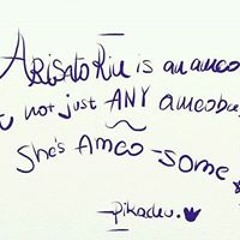 ARisato Riu is an amoeo
not just ANY amoeba,
She's Ameo-some
-pikachu.